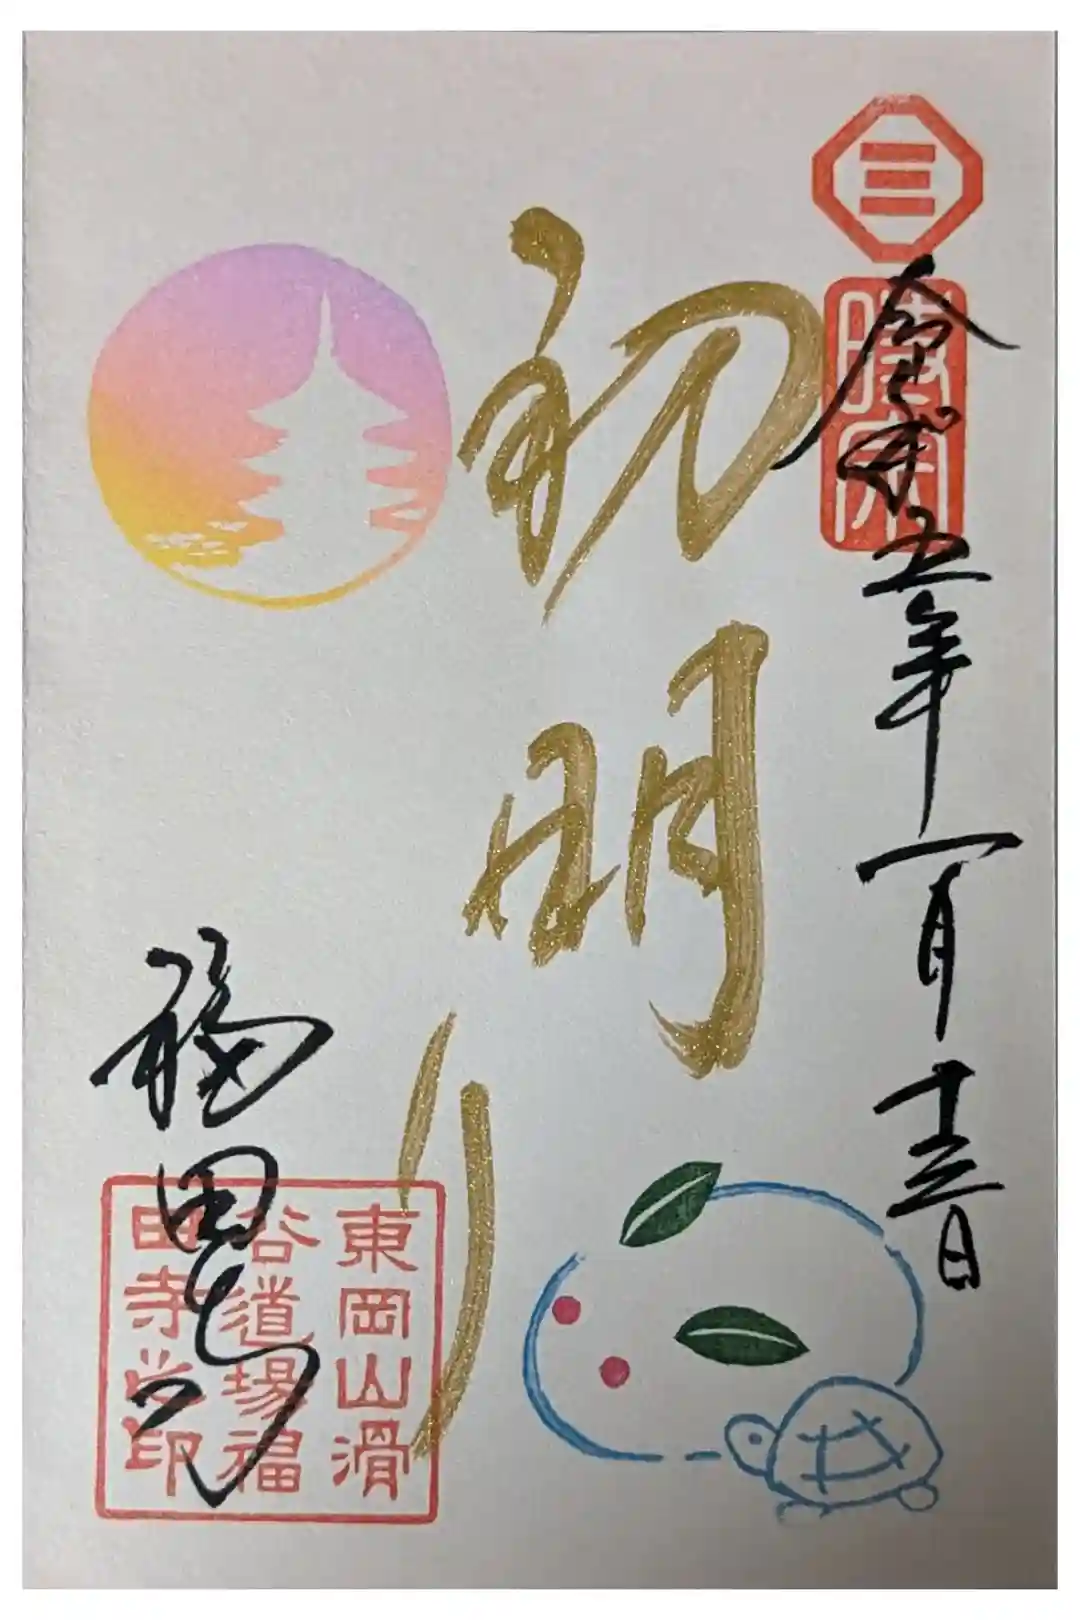 時宗
令和五年一月十三日
初明り
福田寺
東岡山滑
谷道場福
田寺之印